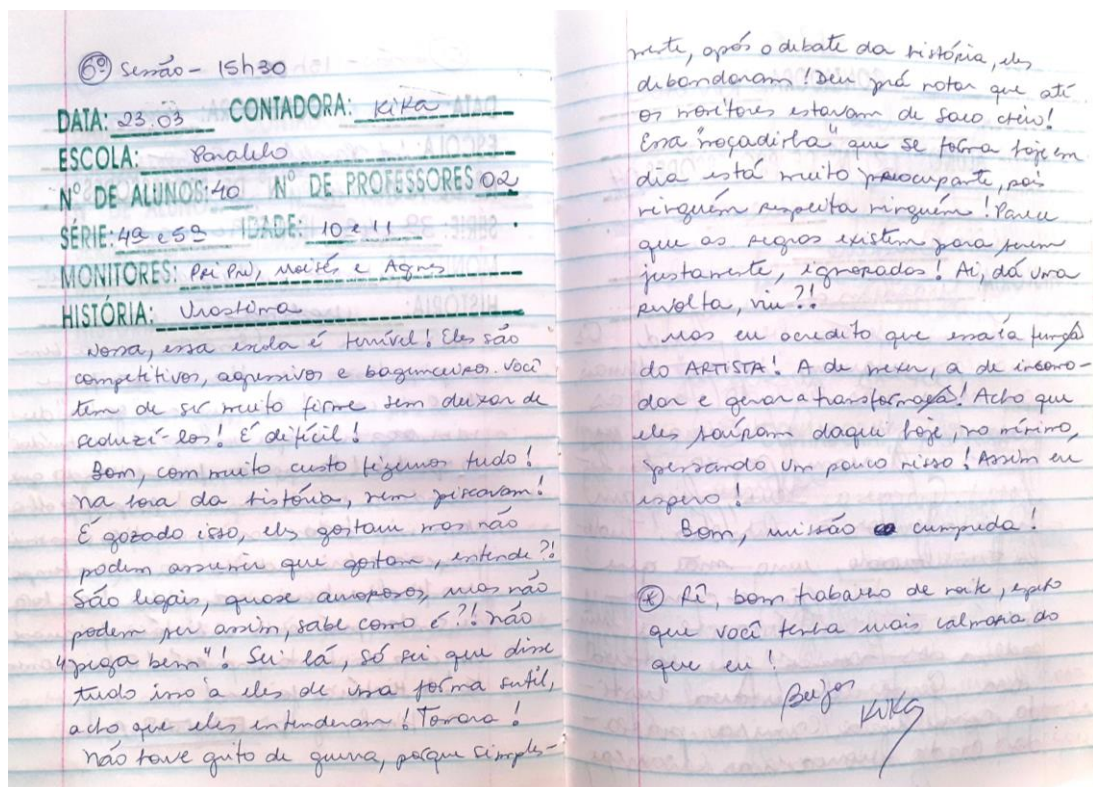 6ª) Sessão - 15h30
DATA: 23.03 CONTADORA: Kika
ESCOLA: Paralelo
Nº DE ALUNOS: 40 Nº DE PROFESSORES 02
SÉRIE: 4ª e 5ª IDADE: 10 e 11
MONITORES: Pri Pri, Moisés e Agnes
HISTÓRIA:
Nossa, essa escola é terrível! Eles são
competitivos, agressivos e bagunceiros. Você
tem de ser muito firme sem deixar de
seduzí-los! É difícil!
Bom, com muito custo fizemos tudo!
Na hora da história, nem piscavam!
É gozado isso, eles gostam mas não
podem assumir que gostam, entende?!
São legais, quase amorosos, mas não
podem ser assim, sabe como é?! Não
"pega bem"! Sei lá, só sei que disse
tudo isso a eles de uma forma sutil,
acho que eles entenderam! Tomara!
Não houve grito de guerra, porque simples-
mente, após o debate da história, eles
debandaram! Deu prá notar que até
os monitores estavam de saco cheio!
Essa "moçadinha" que se forma hoje em
dia está muito preocupante, pois
ninguém respeita ninguém! Parece
que as regras existem para serem
justamente, ignoradas! Ai, dá uma
revolta, viu?!
Mas eu acredito que essa é a função
do ARTISTA! A de mexer, a de incomo-
dar e gerar a transformação! Acho que
eles saíram daqui hoje, no mínimo,
pensando um pouco nisso! Assim eu
espero!
Bom, missão cumprida!
* Rê, bom trabalho de noite, espero
que você tenha mais calmaria do
que eu!
Beijos
Kika